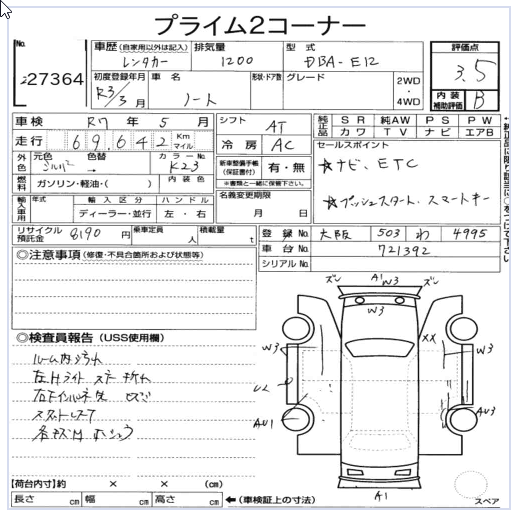 プライム2コーナー
No. 27364
車歴 (自家用以外は記入) 排気量 型式 評価点
レンタカー 1200 DBA-E12 3.5
初度登録年月 車名 形状・ドア数 グレード 2WD・4WD 内装補助評価 B
R3/3月 ノート
車検 R7 年 5 月 シフト AT 純正品 SR 純AW PS PW
カワ TV ナビ エアB
走行 69,642 Km マイル 冷房 AC セールスポイント
☆ナビ、ETC
外色 元色 シルバー 色替 → カラーNo. K23 新車整備手帳 (保証書付) 有・無
※書類と一緒に保管下さい。
☆プッシュスタート、スマートキー
燃料 ガソリン・軽油・( ) 内装色
輸入車用 年式 輸入区分 ハンドル 名義変更期限
ディーラー・並行 左・右 月 日
リサイクル預託金 8190 円 乗車定員 人 積載量 t 登録No. 大阪 503 わ 4995
車台No. 721392
シリアルNo.
◎注意事項 (修復・不具合箇所および状態等)
◎検査員報告 (USS使用欄)
ズレ A1 W3 ズレ
W3
W3 XX W3
ルーム内ヨゴレ
左Hライト
AU1 AU3
A1
【荷台内寸】約 × × (cm)
長さ cm 幅 cm 高さ cm ← (車検証上の寸法)
スペア